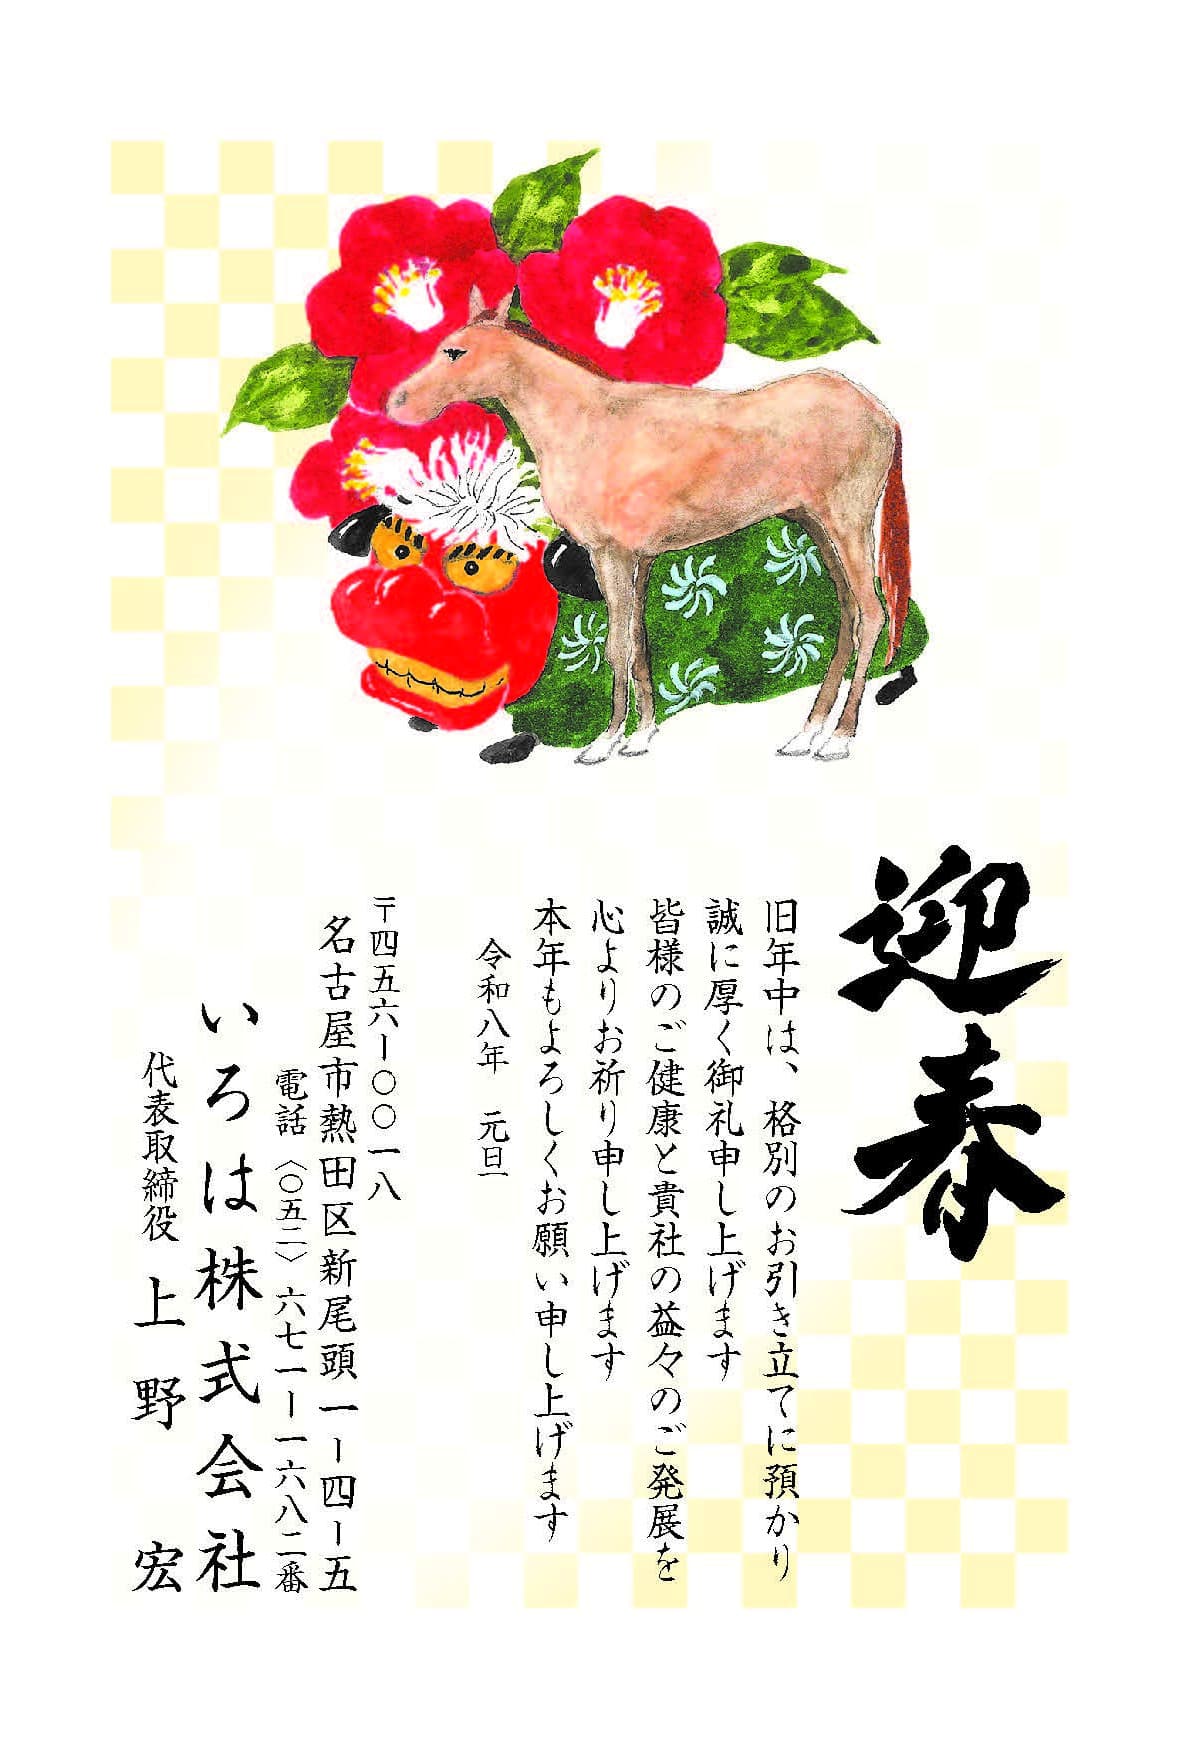 迎春
旧年中は、格別のお引き立てに預かり
誠に厚く御礼申し上げます
皆様のご健康と貴社の益々のご発展を
心よりお祈り申し上げます
本年もよろしくお願い申し上げます
令和八年　元旦
〒四五六ー〇〇一八
名古屋市熱田区新尾頭一ー四ー五
電話〈〇五二〉六七一ー一六八二番
いろは株式会社
代表取締役 上野　宏